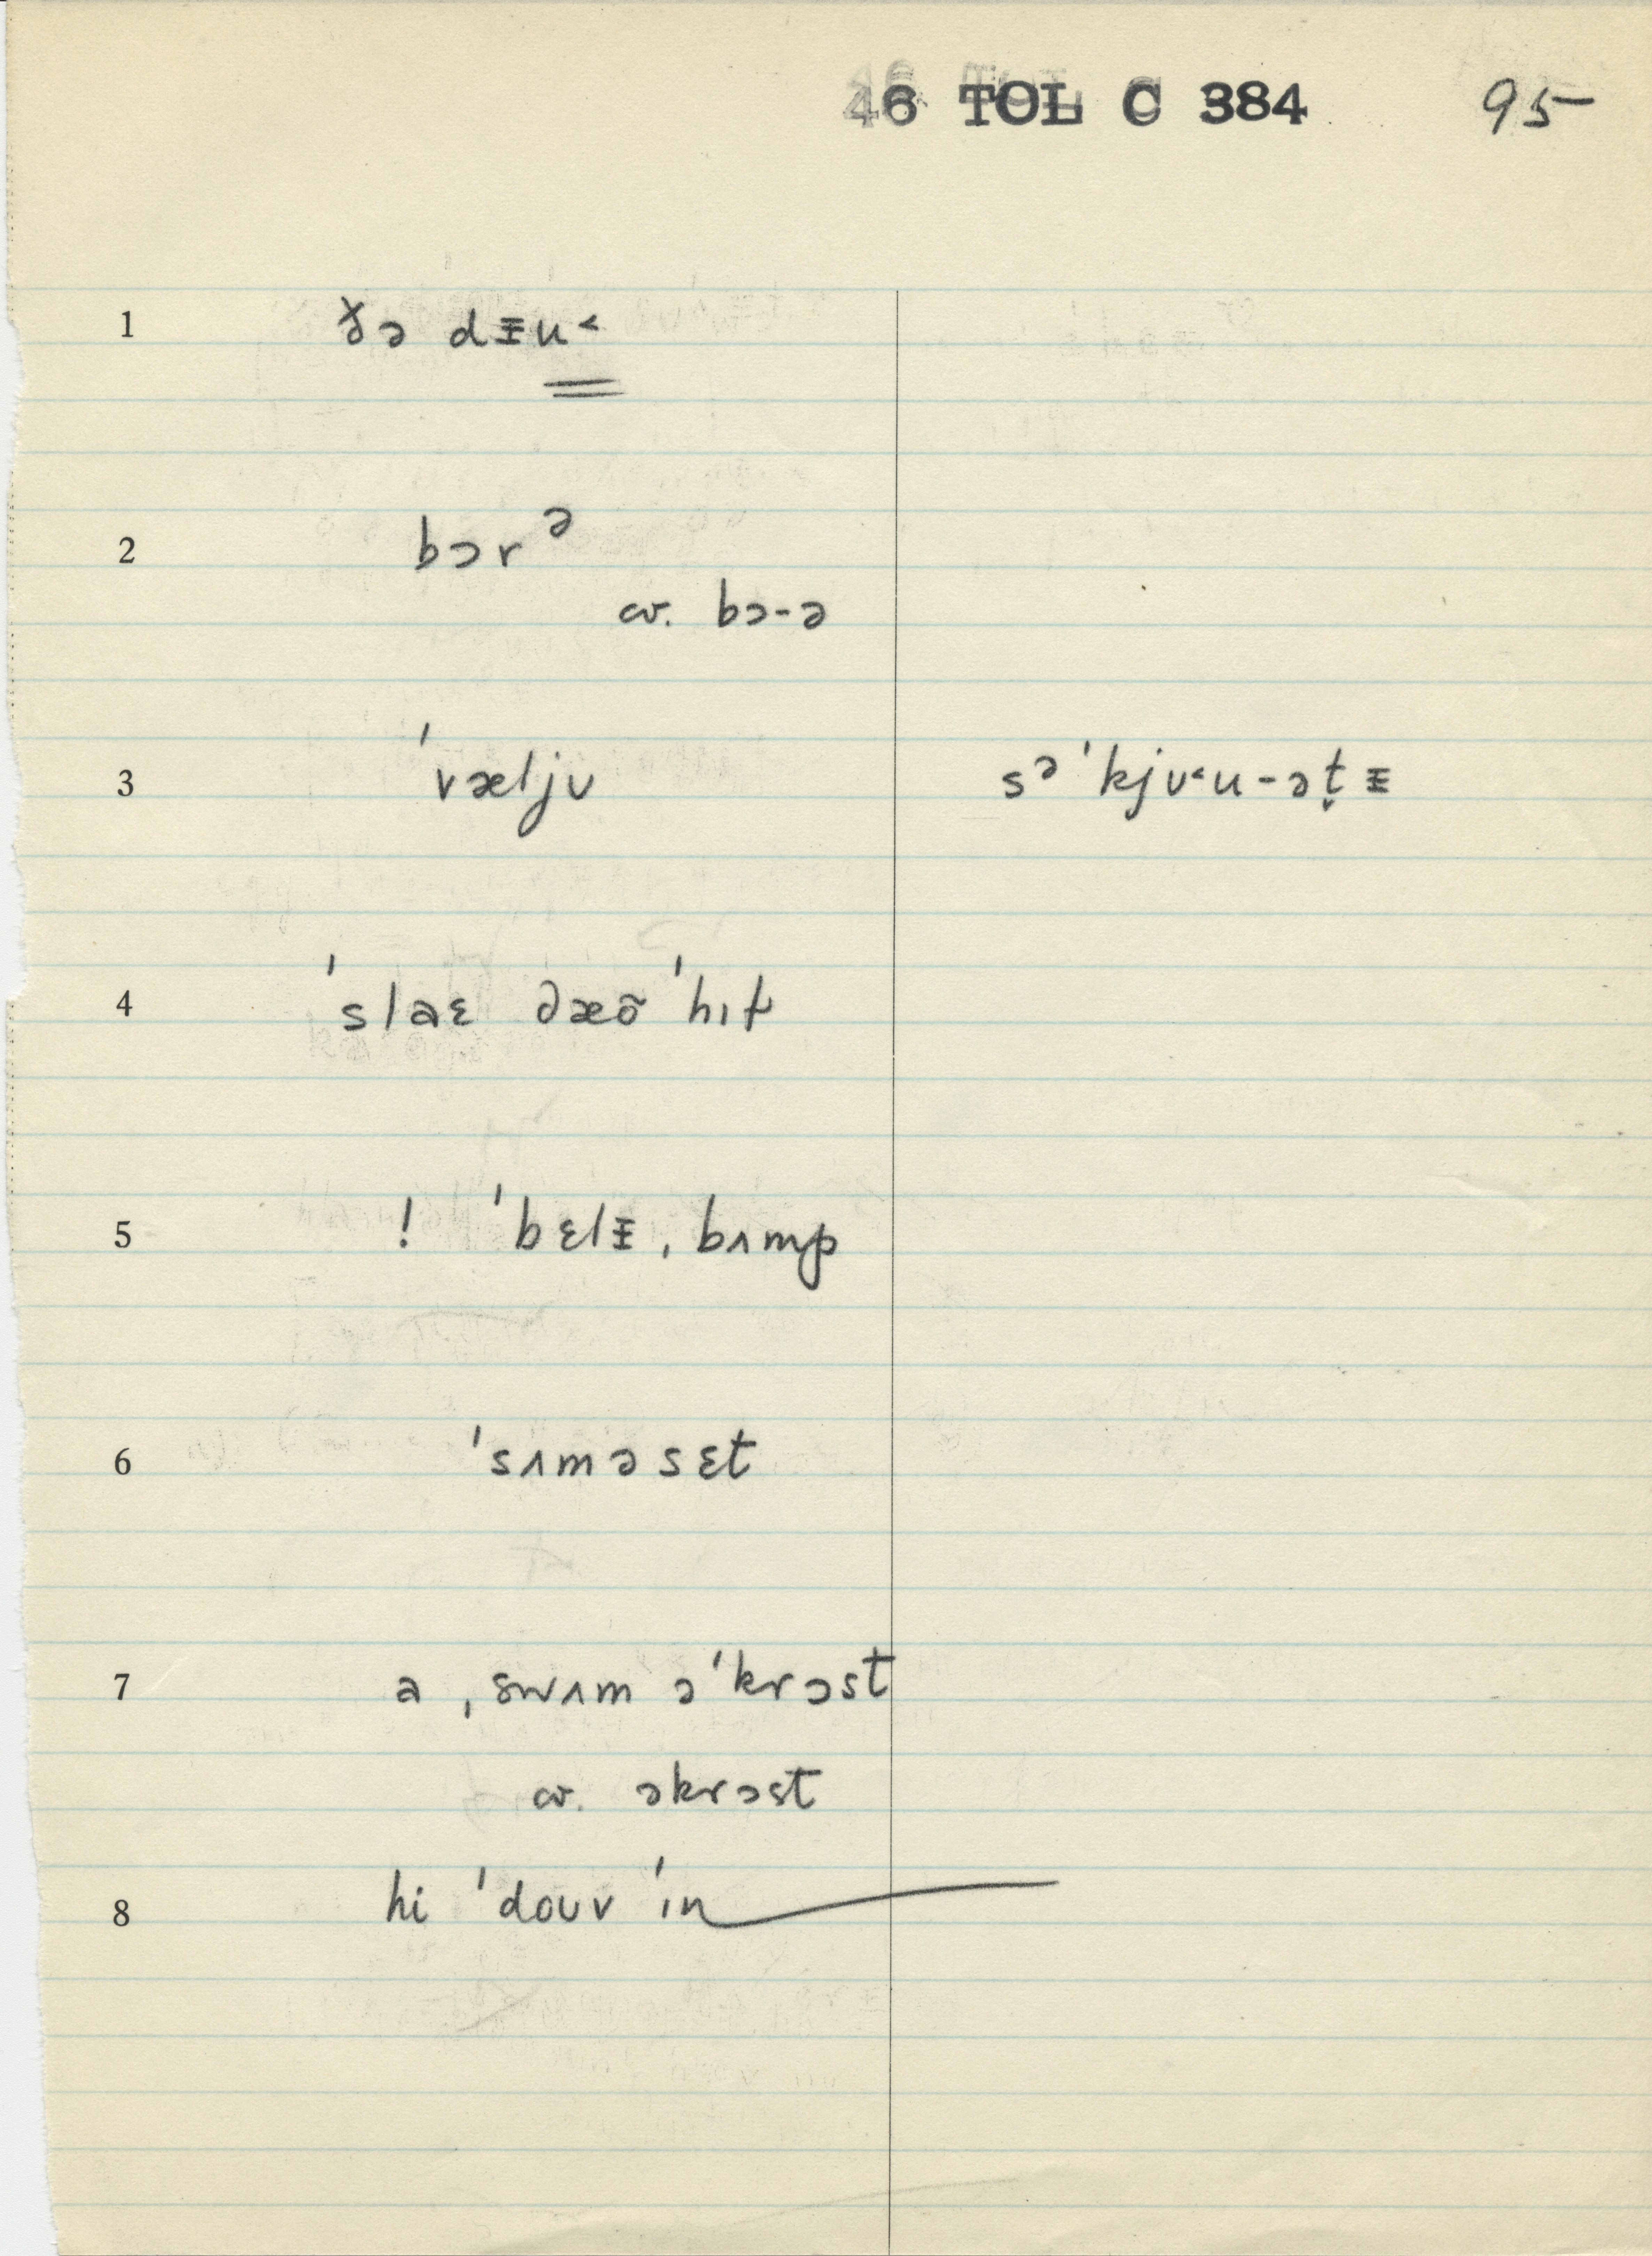 46 TOL C 384 95
1 ðə dᵻu˂
2 bɔrᵊ
cv. bɔ-ə
3 ˈvæljʊ sᵊˈkjʊ˂u-ət̬ᵻ
4 ˈslaɛ ðæõ ˈhɪt
5 ! ˈbɛlᵻ, bʌmp
6 ˈsʌməsɛt
7 a ˌswʌm əˈkrɔst
cv. əkrɔst
8 hi ˈdoʊv ˈɪn